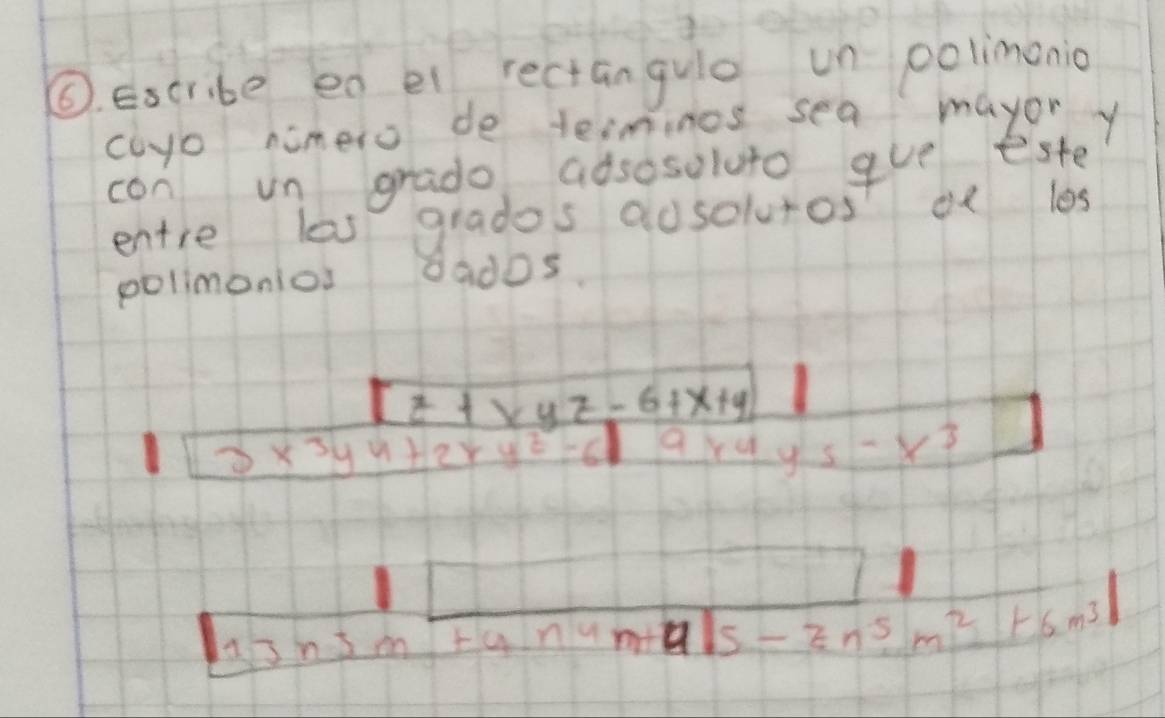 6. Escribe en el rectángulo un polimonio
cuyo número de terminos sea mayor y
con un grado adsosoluto que este
entre los grados adsolutos de los
polimonios dados.
z + xyz - 6 + x + y
3x3y4 + 2xyz - 6 9x4y5 - x³
n3m + 4n4m+9 5 - zn⁵m² + 6m³